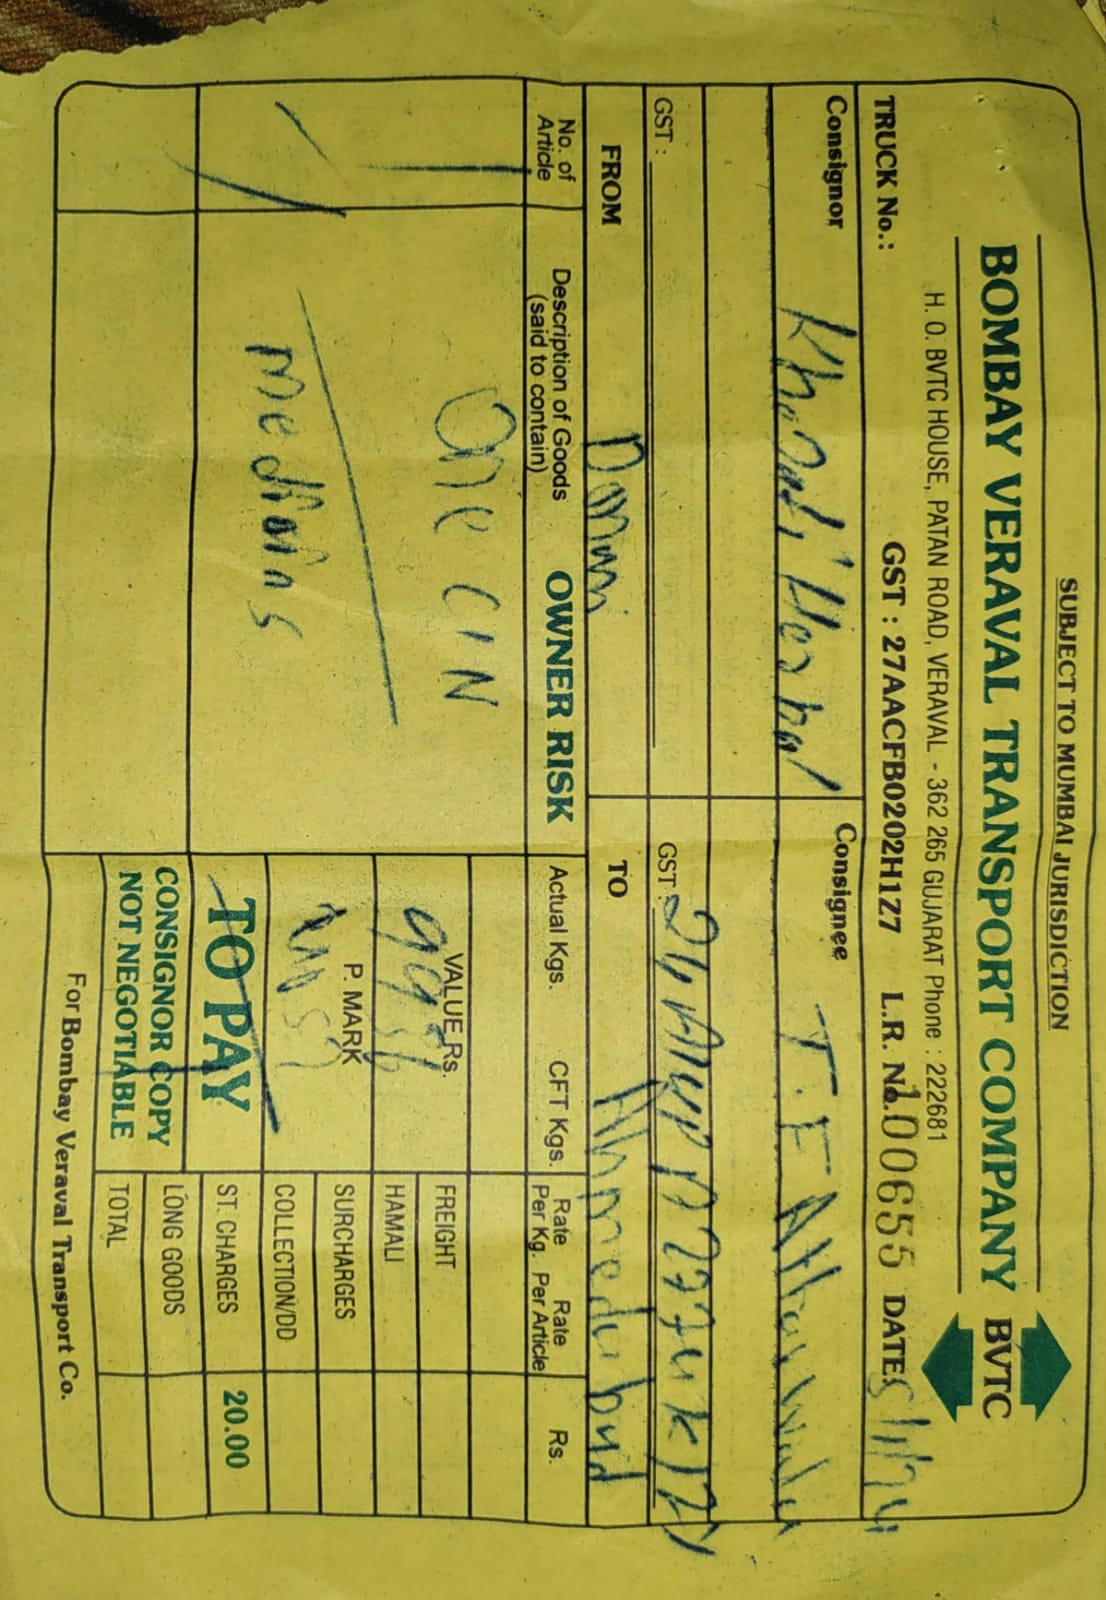 SUBJECT TO MUMBAI JURISDICTION
BOMBAY VERAVAL TRANSPORT COMPANY BVTC
H. O. BVTC HOUSE, PATAN ROAD, VERAVAL - 362 265 GUJARAT Phone : 222681
TRUCK No.: GST : 27AACFB0202H1Z7 L.R. No. 100655 DATE
Consignor Consignee T.F
GST : GST :
FROM Daman TO Ahmedabad
No. of Article Description of Goods (said to contain) OWNER RISK Actual Kgs. CFT Kgs. Rate Per Kg. Rate Per Article Rs.
1 One C/N
VALUE Rs. FREIGHT
HAMALI
P. MARK SURCHARGES
COLLECTION/DD
TO PAY ST. CHARGES 20.00
CONSIGNOR COPY LONG GOODS
NOT NEGOTIABLE TOTAL
For Bombay Veraval Transport Co.